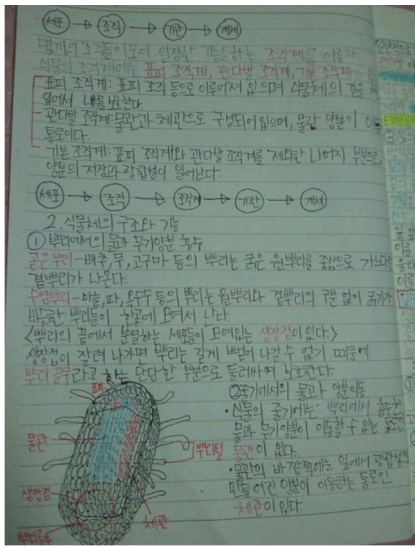 세포 → 조직 → 기관 → 개체
몇개의 조직들이 모여 일정한 기능을하는 조직계를 이룬다
식물의 조직계에는 표피 조직계, 관다발 조직계, 기본 조직계가
표피 조직계: 표피 조직 등으로 이루어져 있으며 식물체의 겉을
있어서 내부를 보호한다
관다발 조직계: 물관과 체관으로 구성되어있으며, 물과 양분이
통로이다.
기본 조직계: 표피 조직계와 관다발 조직계를 제외한 나머지 부분으로
양분의 저장과 광합성이 일어난다
세포 → 조직 → 조직계 → 기관 → 개체
2. 식물체의 구조와 기능
① 뿌리에서의 물과 무기양분 흡수
곧은뿌리 - 배추, 무, 고구마 등의 뿌리는 굵은 원뿌리를 중심으로 가느다란
곁뿌리가 나온다.
수염뿌리 - 마늘, 파, 옥수수 등의 뿌리는 원뿌리와 곁뿌리의 구분 없이 굵기가
비슷한 뿌리들이 한곳에 모여서 난다
<뿌리의 끝에서 분열하는 세포들이 모여있는 생장점이 있다.>
생장점이 잘려 나가면 뿌리는 길게 뻗어 나갈 수 없기 때문에
뿌리 골무라고 하는 단단한 부분으로 둘러싸여 보호한다
②줄기에서의 물과 양분이동
• 식물의 줄기에는 뿌리에서 흡수한
물과 무기양분이 이동할 수 있는 통로인
물관이 있다.
• 물관의 바깥쪽에는 잎에서 광합성
만들어진 양분이 이동하는 통로인
체관이 있다
표피
물관
뿌리털
생장점
체관
뿌리골무